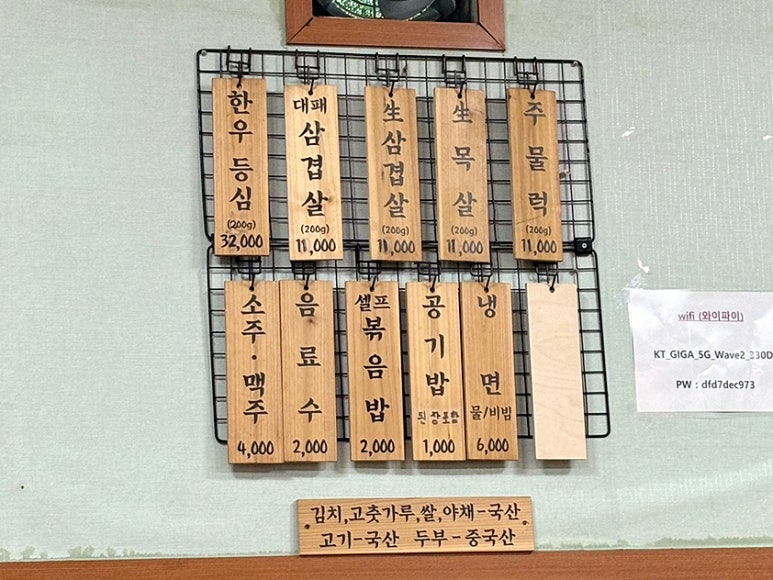 한우등심
(200g)
32,000
대패
삼겹살
(200g)
11,000
生삼겹살
(200g)
11,000
生목살
(200g)
11,000
주물럭
(200g)
11,000
소주·맥주
4,000
음료수
2,000
셀프
볶음밥
2,000
공기밥
된장포함
1,000
냉면
물/비빔
6,000
wifi (와이파이)
KT_GIGA_5G_Wave2_330D
PW : dfd7dec973
김치,고춧가루,쌀,야채-국산
고기-국산 두부-중국산